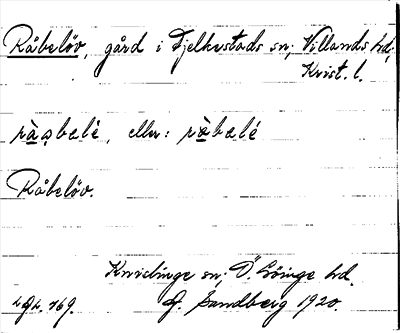 Råbelöv, gård i Fjelkestads sn; Villands hd;
Krist. l.
ràabælé, eller: ròbælé
Råbelöv.
Knislinge sn; Ö. Göinge hd.
G. Sandberg 1920.